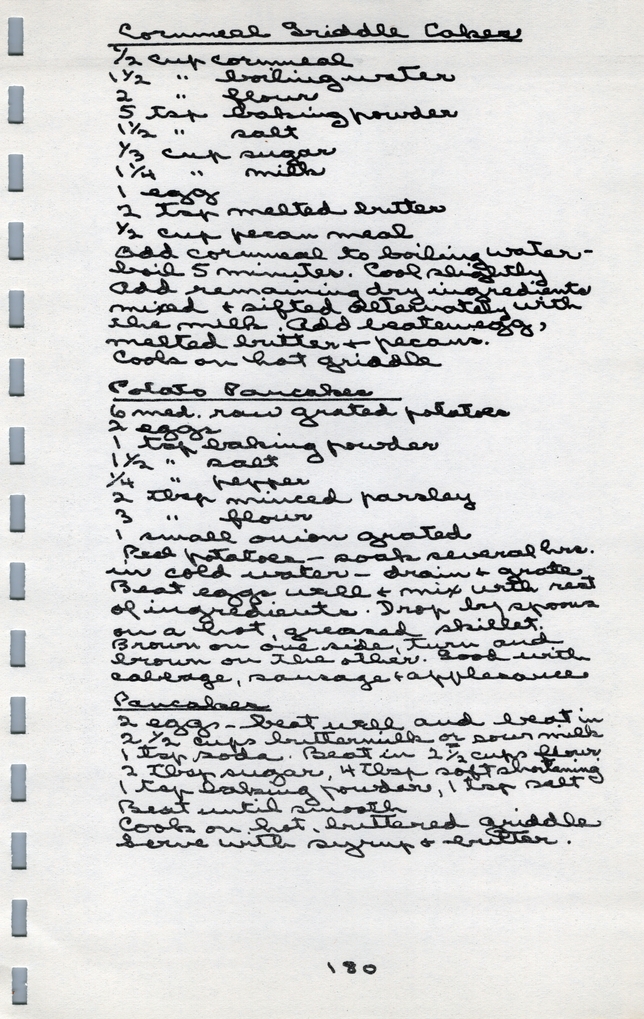 Cornmeal Griddle Cakes
1/2 cup cornmeal
1 1/2 " boiling water
2 " flour
5 tsp baking powder
1 1/2 " salt
1/3 cup sugar
1 1/4 " milk
1 egg
2 tsp melted butter
1/2 cup pecan meal
Add cornmeal to boiling water-
boil 5 minutes. Cool slightly
Add remaining dry ingredients
mixed + sifted alternately with
the milk. Add beaten egg,
melted butter + pecans.
Cook on hot griddle
Potato Pancakes
6 med. raw grated potatoes
2 eggs
1 tsp baking powder
1 1/2 " salt
1/4 " pepper
2 tbsp minced parsley
3 " flour
1 small onion grated
Peel potatoes - soak several hrs.
in cold water - drain + grate
Beat eggs well + mix with rest
of ingredients. Drop by spoons
on a hot, greased skillet.
Brown on one side, turn and
brown on the other. Good with
cabbage, sausage + applesauce
Pancakes
2 eggs - beat well and beat in
2 1/2 cups buttermilk or sour milk
1 tsp soda. Beat in 2 1/2 cups flour
2 tbsp sugar, 4 tbsp soft shortening
1 tsp baking powder, 1 tsp salt
Beat until smooth
Cook on hot, buttered griddle
Serve with syrup + butter.
180